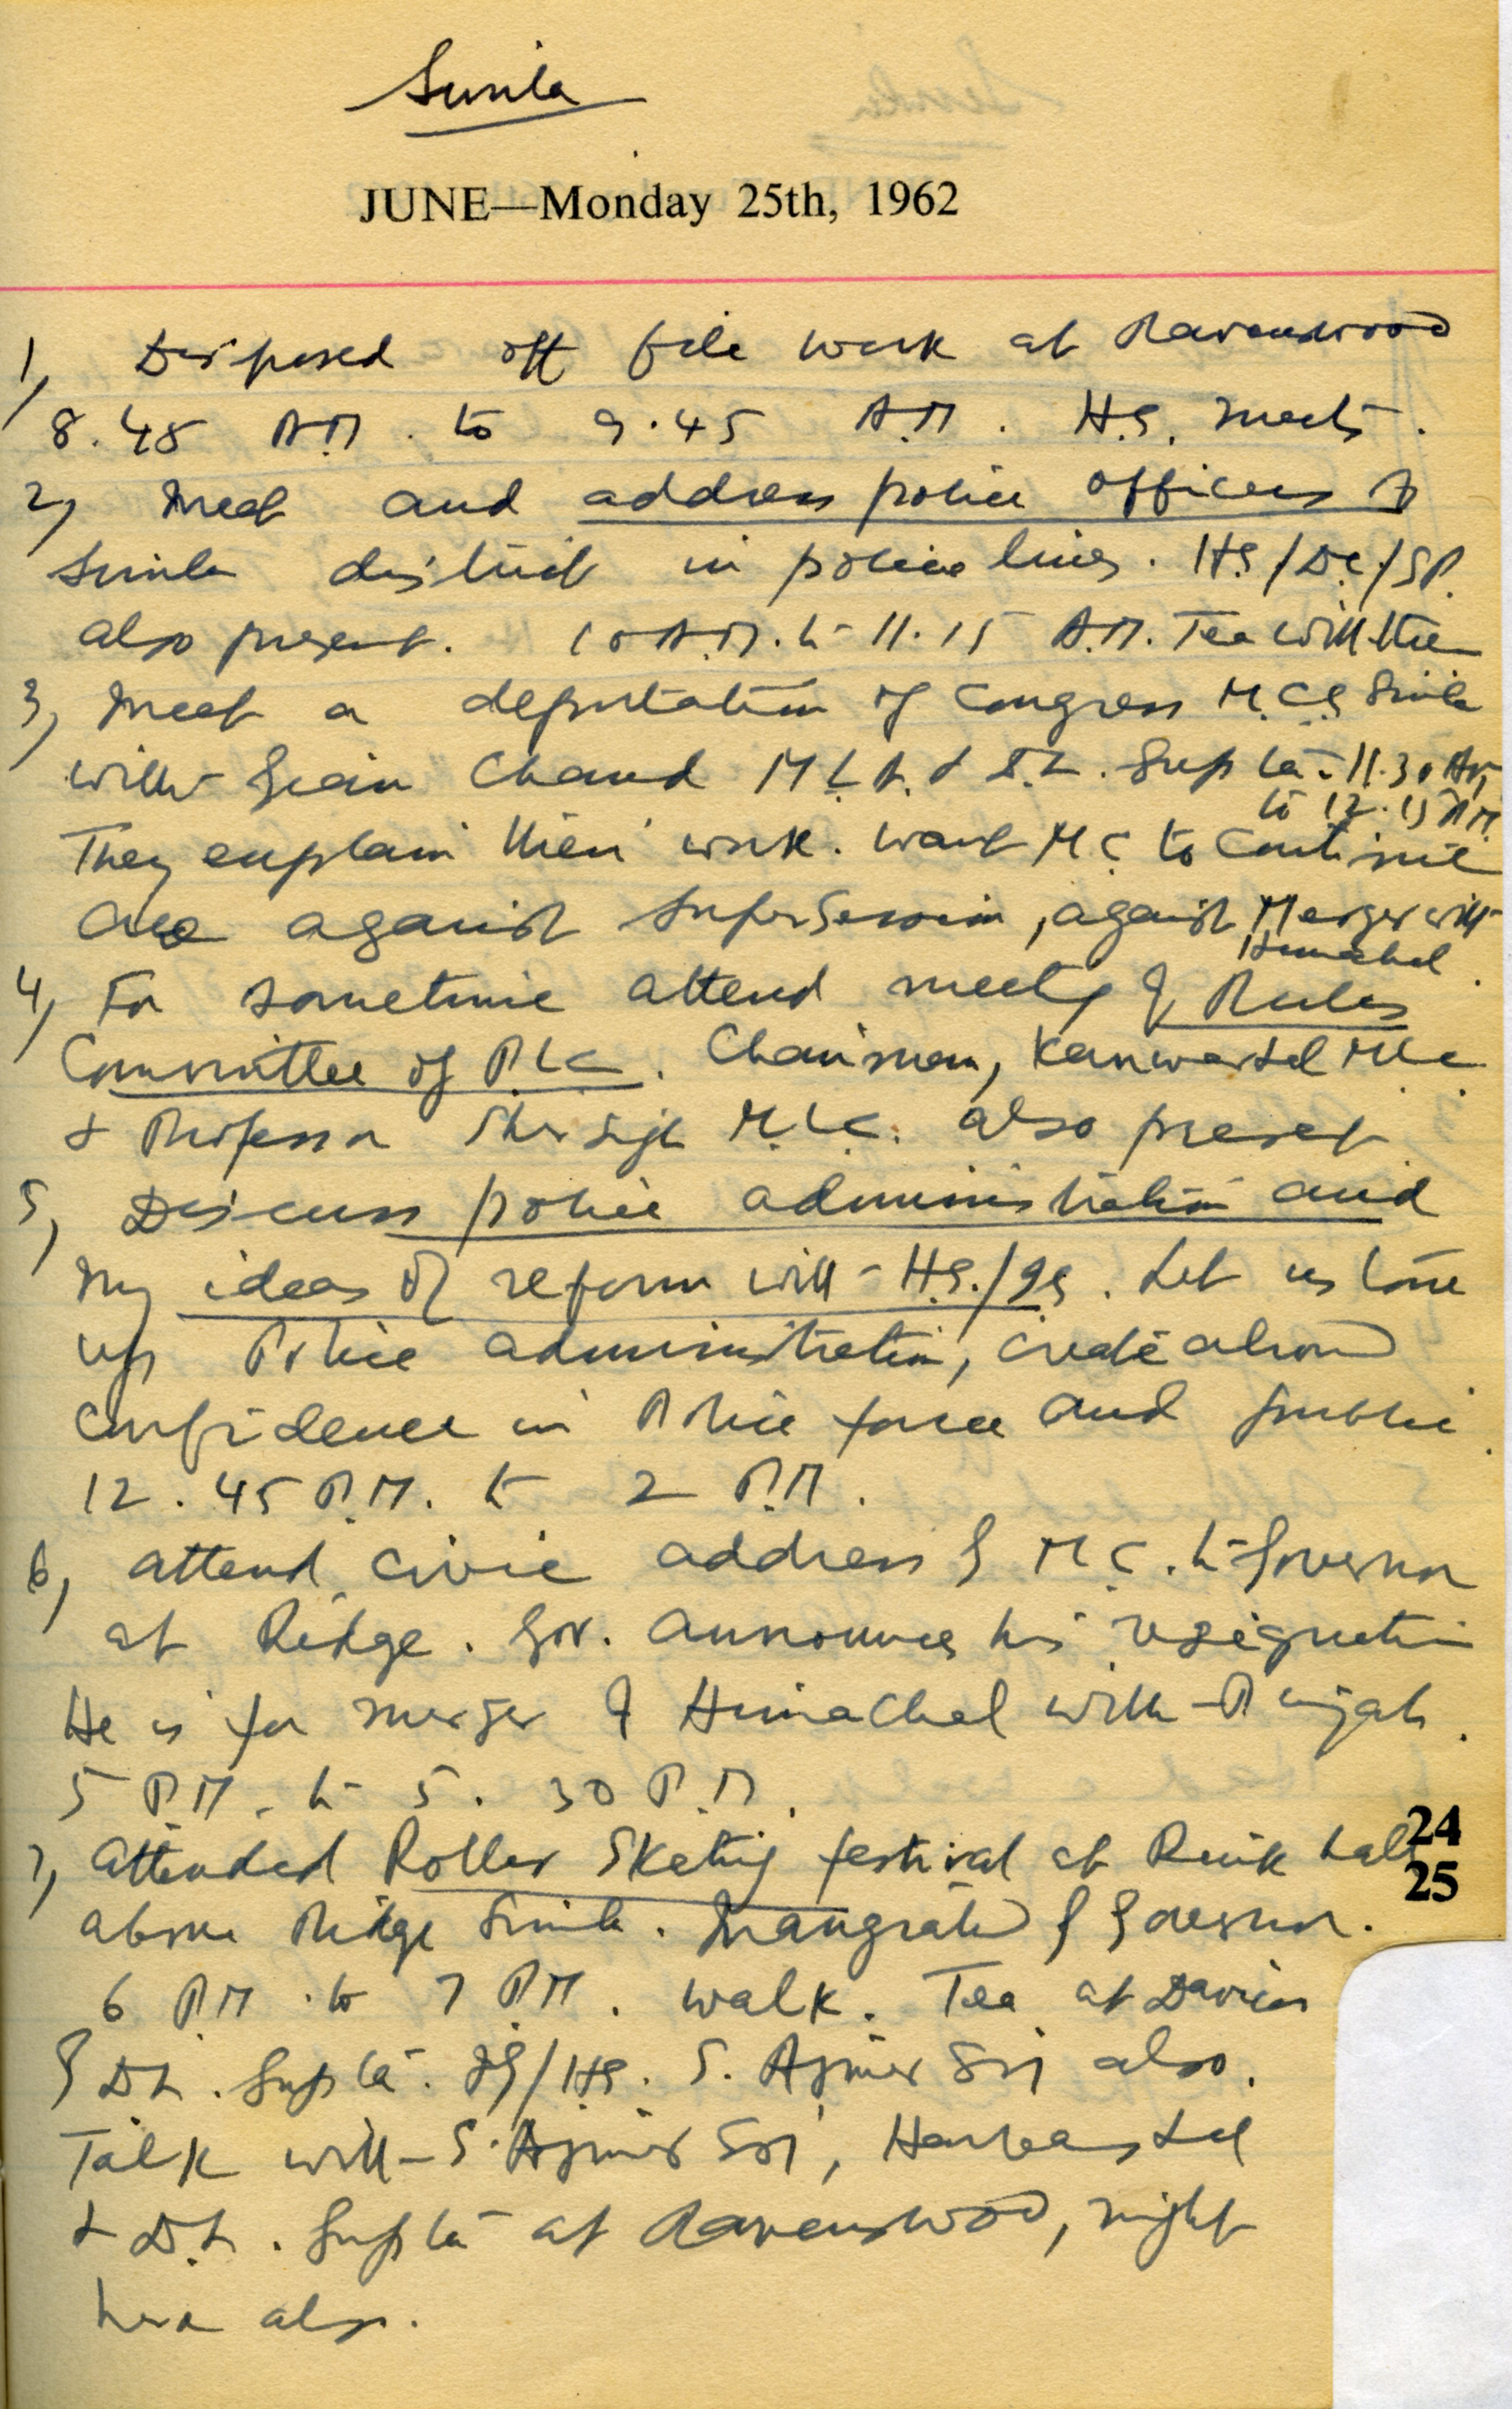 Simla
JUNE—Monday 25th, 1962
1, Disposed off file work at Ravenswood
8.45 A.M. to 9.45 A.M. H.S. meets.
2, Meet and address police officers of
Simla district in police lines. HS/DC/SP.
also present. 10 A.M. to 11.15 A.M. Tea with them
3, Meet a deputation of Congress M.Cs Simla
with Gian Chand M.L.A. & D.L. Gupta. 11.30 AM
to 12.15 P.M.
They explain their work. want M C to continue
are against supersession, against Merger with
Himachal.
4, For sometime attend meeting of Rules
Committee of P.L.C. Chairman, Kanwar Lal MLC
& Professor Sher Singh M.L.C. also present
5, Discuss police administration and
my ideas of reform with H.S./IG. Let us tone
up Police administration, create
confidence in Police force and public.
12.45 P.M. to 2 P.M.
6, attend civic address of M.C. to Governor
at Ridge. Gov. announces his resignation
He is for merger of Himachal with Punjab.
5 P.M. to 5.30 P.M.
7, attended Roller Skating festival at Rink hall
above Ridge Simla. Inaugrated by Governor.
6 P.M. to 7 P.M. walk. Tea at Davicos
by D.L. Gupta. IG/HS. S. Ajmer Singh also.
Talk with S. Ajmer Singh, Harbans Lal
& D.L. Gupta at Ravenswood, night
here also.
24
25